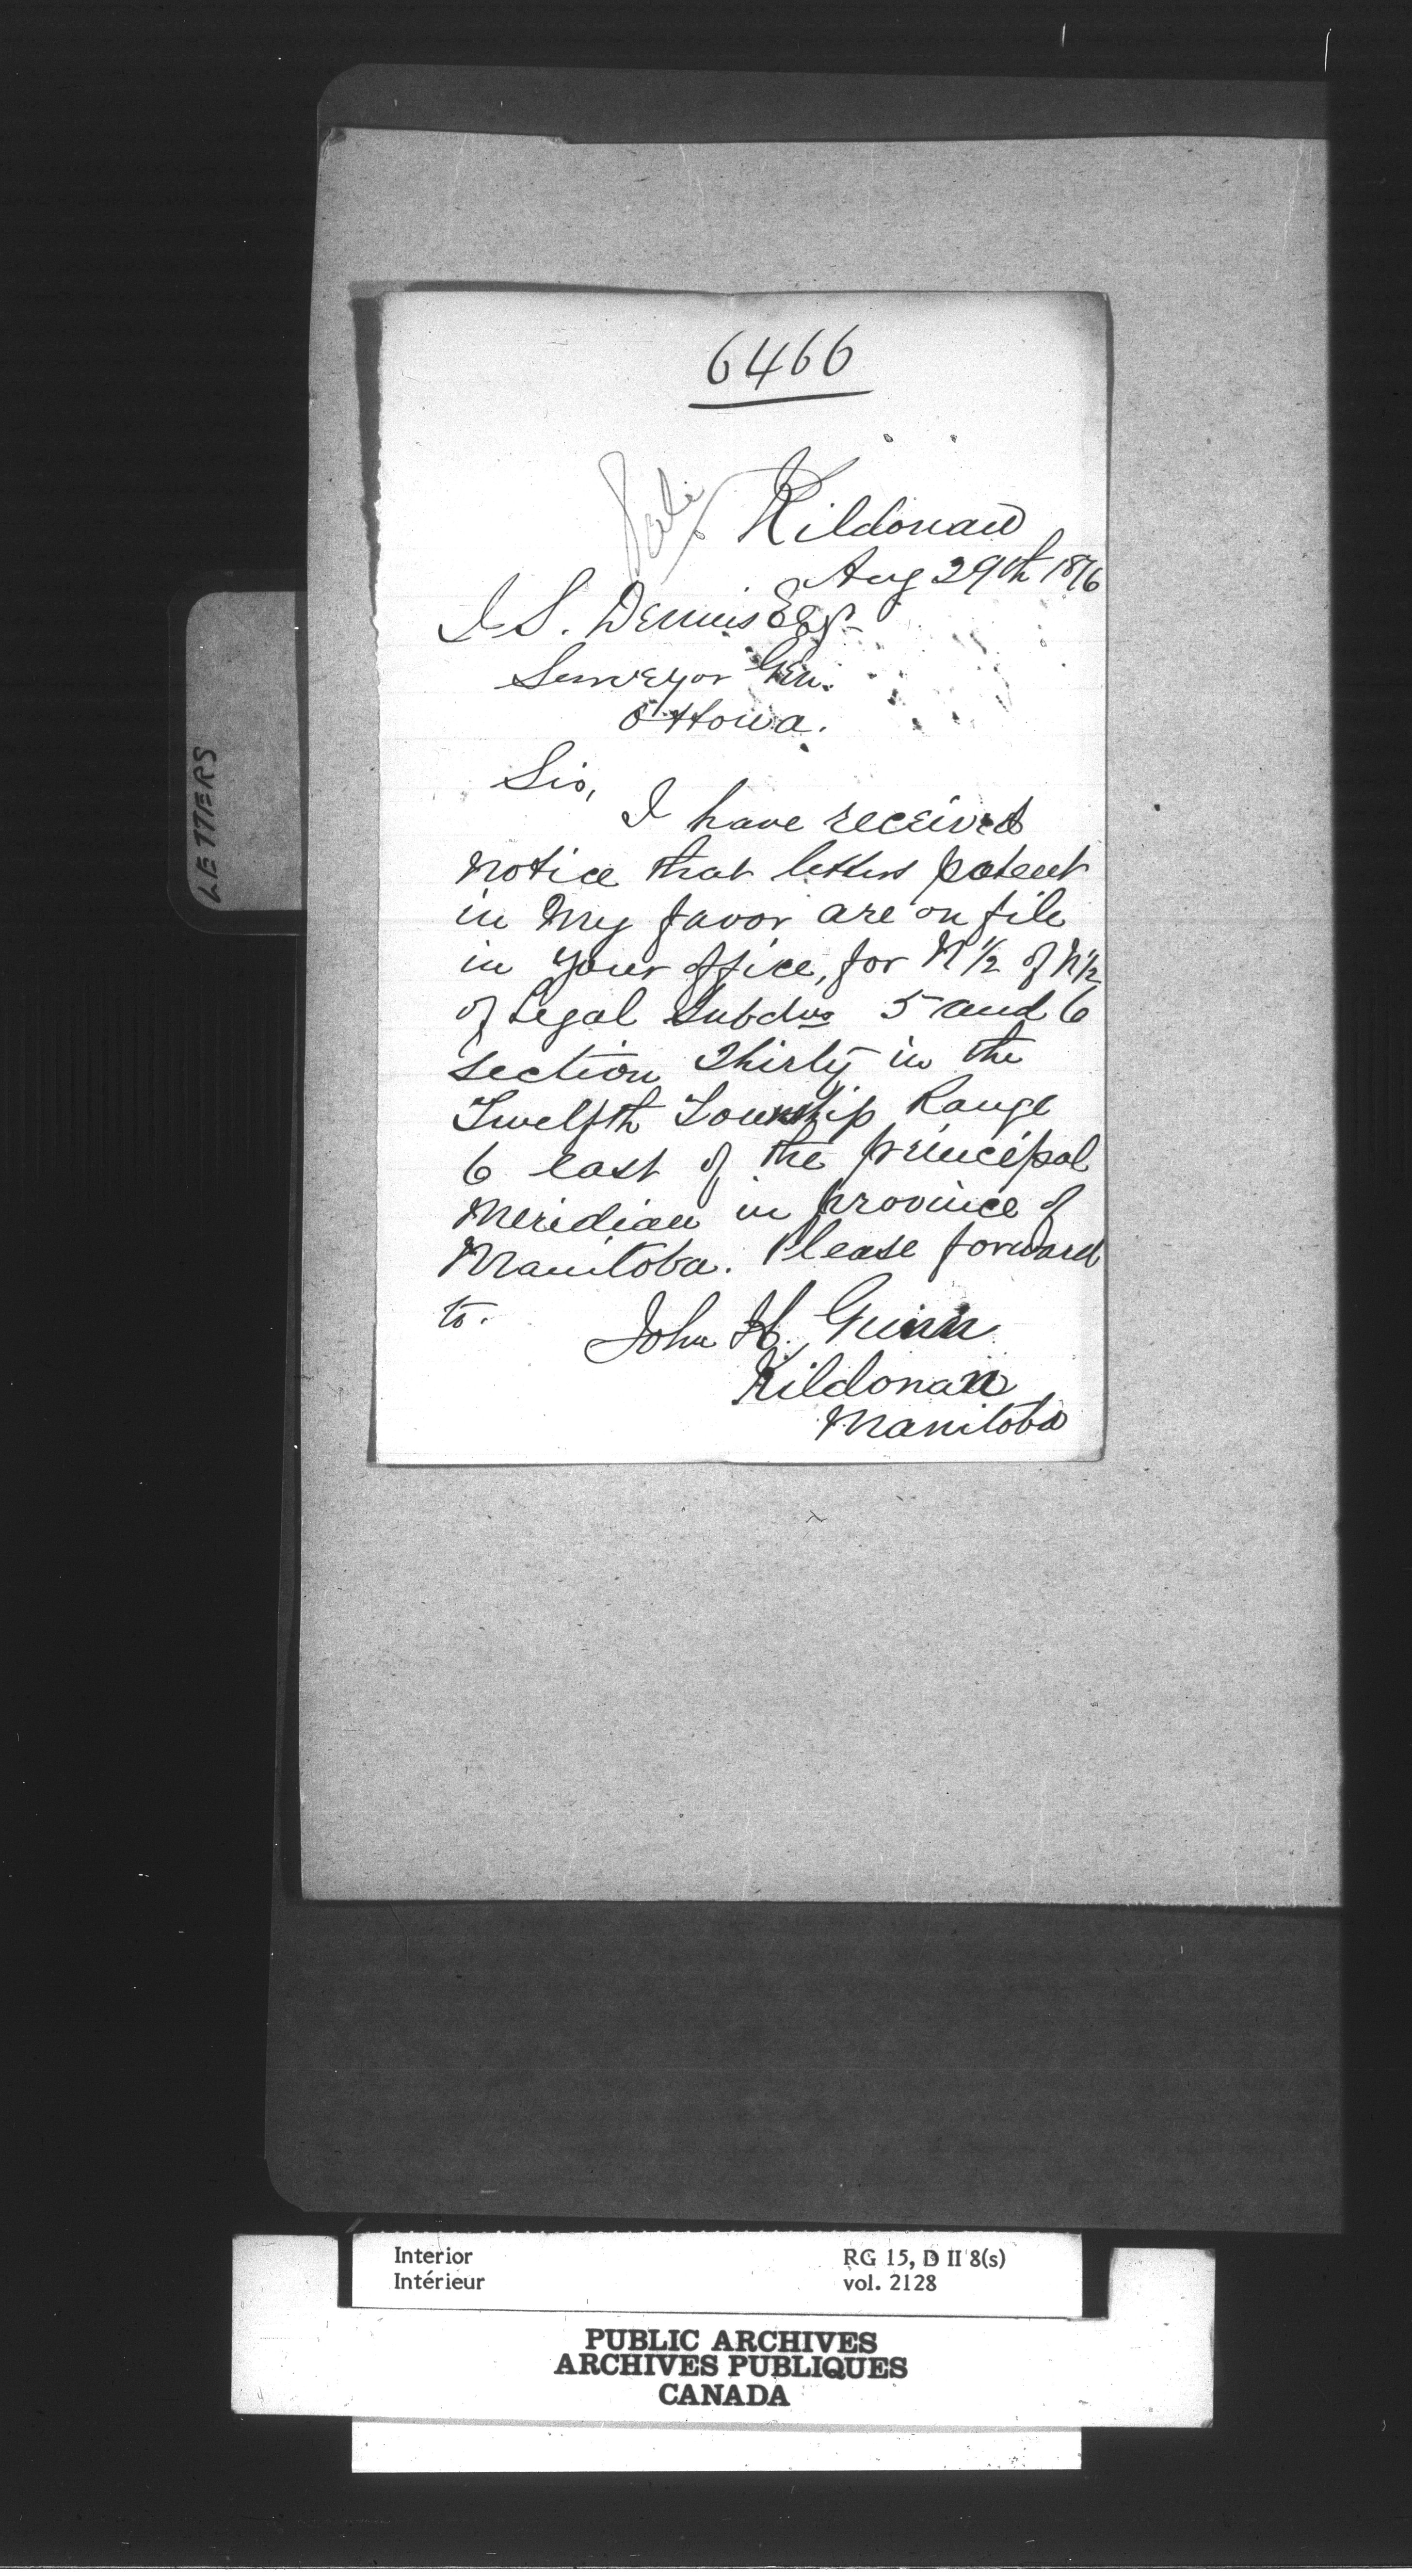 6466
Sale
Kildonan
Aug 29th 1876
J S. Dennis Esqr
Surveyor Gen.
Ottowa.
Sir,
I have received
notice that letters patent
in my favor are on file
in your office, for N 1/2 of N 1/2
of Legal Subdvs 5 and 6
section Thirty in the
Twelfth Township Range
6 east of the principal
Meridian in province of
Manitoba. Please forward
to.
John H. Gunn
Kildonan
Manitoba
LETTERS
Interior
Intérieur
RG 15, D II 8(s)
vol. 2128
PUBLIC ARCHIVES
ARCHIVES PUBLIQUES
CANADA